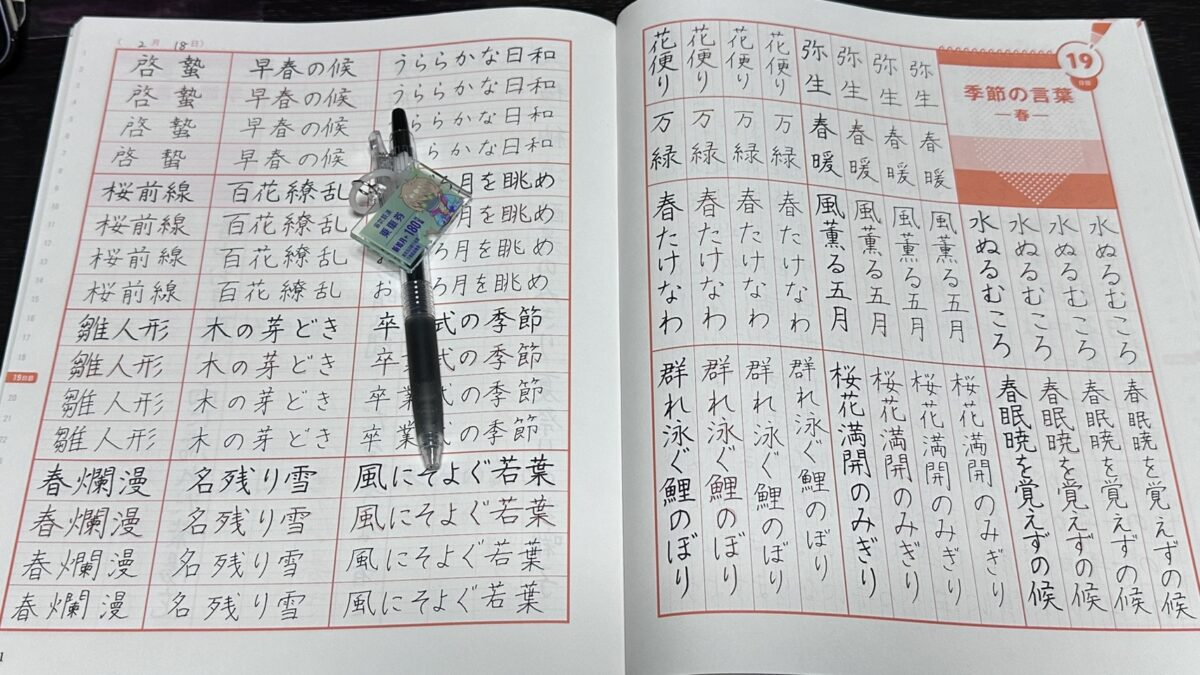 2月 18日
啓蟄 早春の候 うららかな日和
啓蟄 早春の候 うららかな日和
啓蟄 早春の候 ららかな日和
啓蟄 早春の候 らかな日和
桜前線 百花繚乱 月を眺め
桜前線 百花繚乱 月を眺め
桜前線 百花繚乱 ろ月を眺め
桜前線 百花繚乱 お ろ月を眺め
雛人形 木の芽どき 卒 式の季節
雛人形 木の芽どき 卒業式の季節
雛人形 木の芽どき 卒業式の季節
雛人形 木の芽どき 卒業式の季節
春爛漫 名残り雪 風にそよぐ若葉
春爛漫 名残り雪 風にそよぐ若葉
春爛漫 名残り雪 風にそよぐ若葉
春爛漫 名残り雪 風にそよぐ若葉
19日目
180
19
日目
季節の言葉
―春―
弥生
弥生
弥生
弥生
花便り
花便り
花便り
花便り
春暖
春暖
春暖
春暖
万緑
万緑
万緑
万緑
水ぬるむころ
水ぬるむころ
水ぬるむころ
水ぬるむころ
風薫る五月
風薫る五月
風薫る五月
風薫る五月
春たけなわ
春たけなわ
春たけなわ
春たけなわ
春眠暁を覚えずの候
春眠暁を覚えずの候
春眠暁を覚えずの候
春眠暁を覚えずの候
桜花満開のみぎり
桜花満開のみぎり
桜花満開のみぎり
桜花満開のみぎり
群れ泳ぐ鯉のぼり
群れ泳ぐ鯉のぼり
群れ泳ぐ鯉のぼり
群れ泳ぐ鯉のぼり